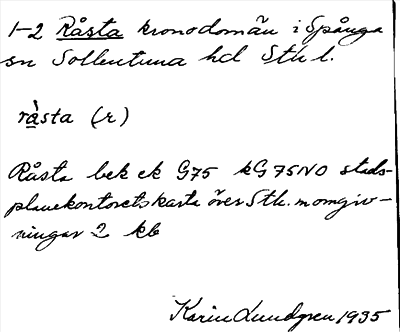 1-2 Råsta kronodomän i Spånga
sn Sollentuna hd Sthl.
rå̀sta (r)
Råsta bek ek G75 kG75NO stads-
planekontorets karta över Sth. m omgiv-
ningar 2 kb
Karin Lundgren 1935